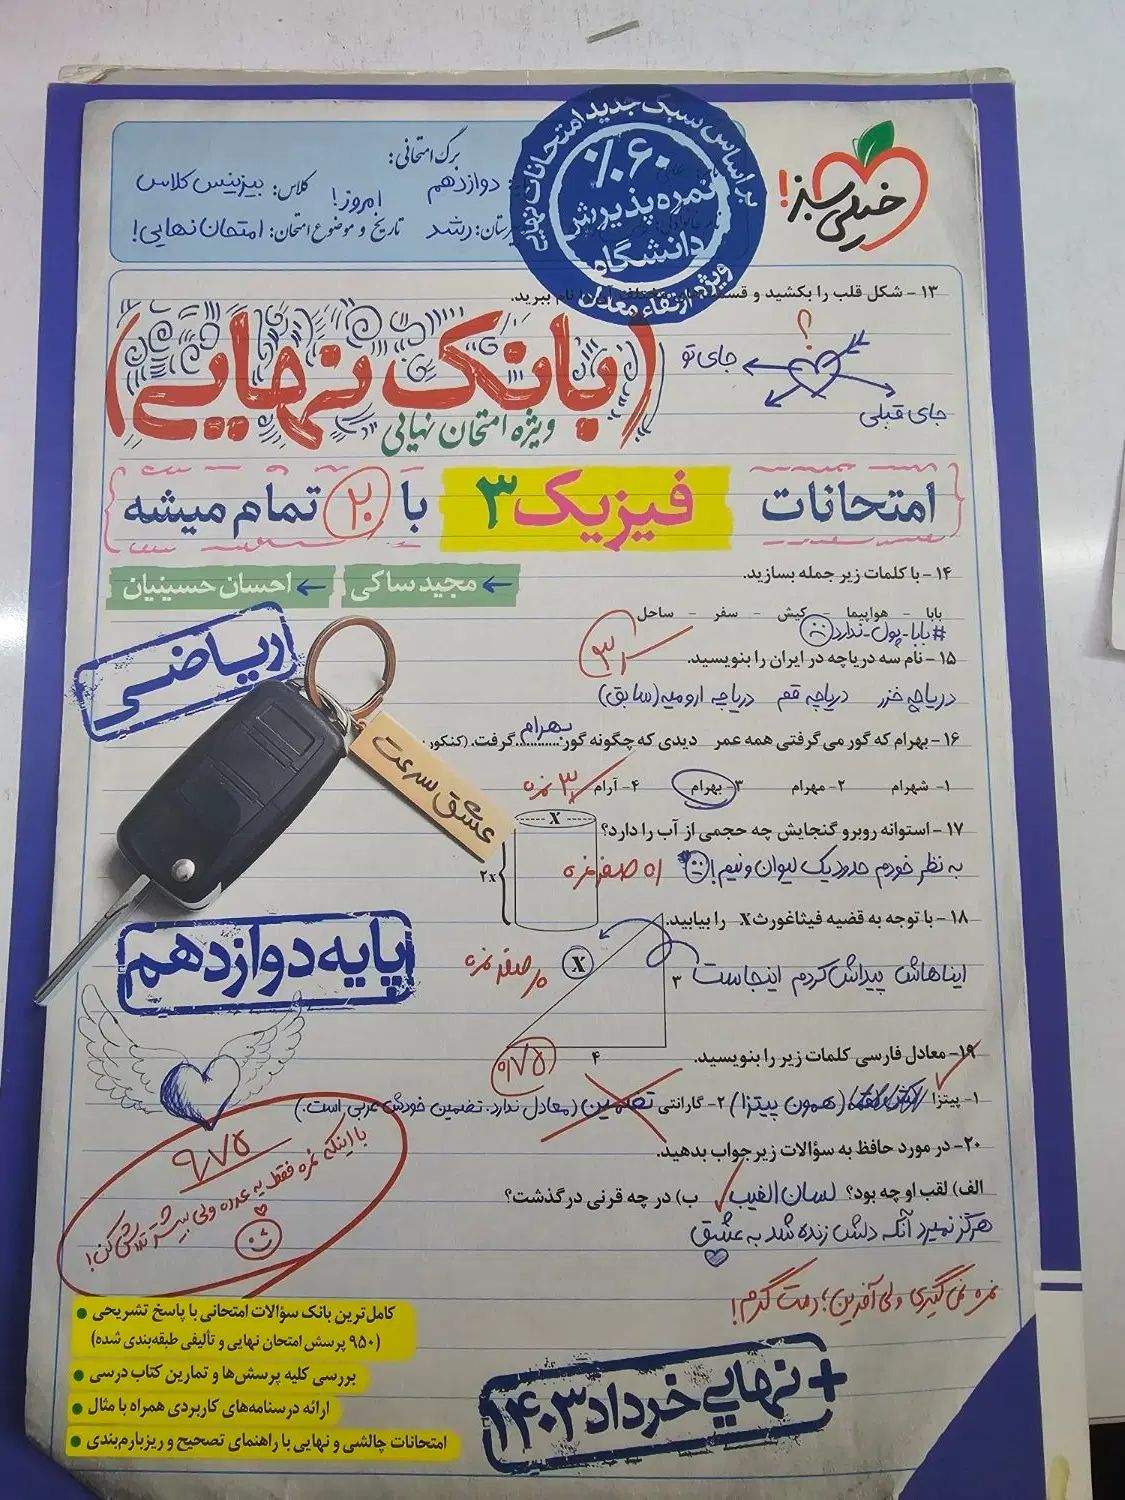 خیلی سبز!
براساس سبک جدید امتحانات نهایی
%۶۰
نمره پذیرش
دانشگاه
ویژه ارتقاء معدل
برگ امتحانی:
دوازدهم
کلاس: بیزینس کلاس
امروز!
رشد
تاریخ و موضوع امتحان: امتحان نهایی!
۱۳ - شکل قلب را بکشید و نام ببرید.
؟
جای تو
جای قبلی
(بانک نهایی)
ویژه امتحان نهایی
امتحانات فیزیک ۳ با ۲۰ تمام میشه
۱۴ - با کلمات زیر جمله بسازید.
مجید ساکی
احسان حسینیان
بابا - هواپیما - کیش - سفر - ساحل
#بابا-پول-ندارد
ریاضی
۱۵ - نام سه دریاچه در ایران را بنویسید.
دریاچه خزر دریاچه قم دریاچه ارومیه (سابق)
۱۶ - بهرام که گور می‌گرفتی همه عمر دیدی که چگونه گور بهرام گرفت. (کنکور
۱- شهرام ۲- مهرام ۳- بهرام ۴- آرام
۳ نمره
عشق سرعت
۱۷ - استوانه روبرو گنجایش چه حجمی از آب را دارد؟
X
۲x
به نظر خودم حدود یک لیوان و نیم!
صفر نمره
۱۸ - با توجه به قضیه فیثاغورث X را بیابید.
ایناهاش پیداش کردم اینجاست
X
۳
۴
صفر نمره
پایه دوازدهم
۱۹- معادل فارسی کلمات زیر را بنویسید.
۰/۷۵
۱- پیتزا (همون پیتزا) ۲- گارانتی تضمین (معادل ندارد. تضمین خودش عربی است.)
۲۰- در مورد حافظ به سؤالات زیر جواب بدهید.
الف) لقب او چه بود؟ لسان الغیب ب) در چه قرنی درگذشت؟
هرگز نمیرد آنکه دلش زنده شد به عشق
نمره نمی‌گیری ولی آفرین! دمت گرم!
۹/۷۵
با اینکه نمره فقط یه عدده ولی بیشتر تلاش کن!
کامل‌ترین بانک سؤالات امتحانی با پاسخ تشریحی
(۹۵۰ پرسش امتحان نهایی و تألیفی طبقه‌بندی شده)
بررسی کلیه پرسش‌ها و تمارین کتاب درسی
ارائه درسنامه‌های کاربردی همراه با مثال
امتحانات چالشی و نهایی با راهنمای تصحیح و ریزبارم‌بندی
+ نهایی خرداد ۱۴۰۳